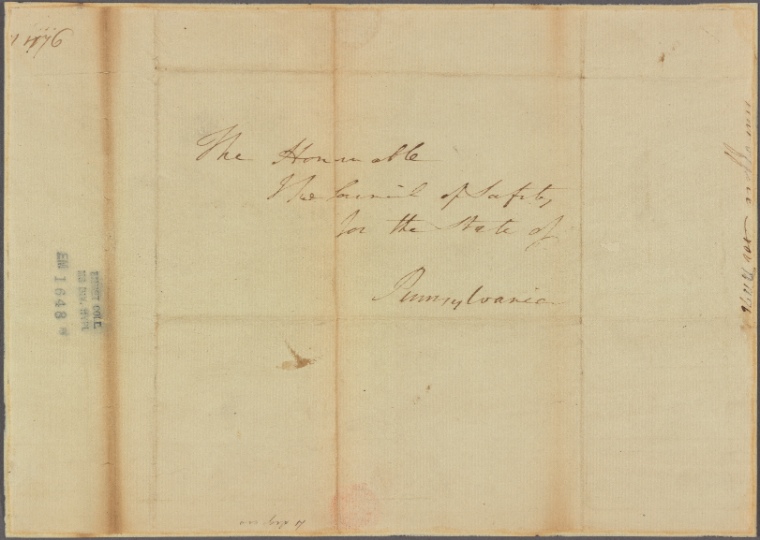 The Honourable
The Council of Safety
for the State of
Pennsylvania
EMMET COLL.
EM 1648